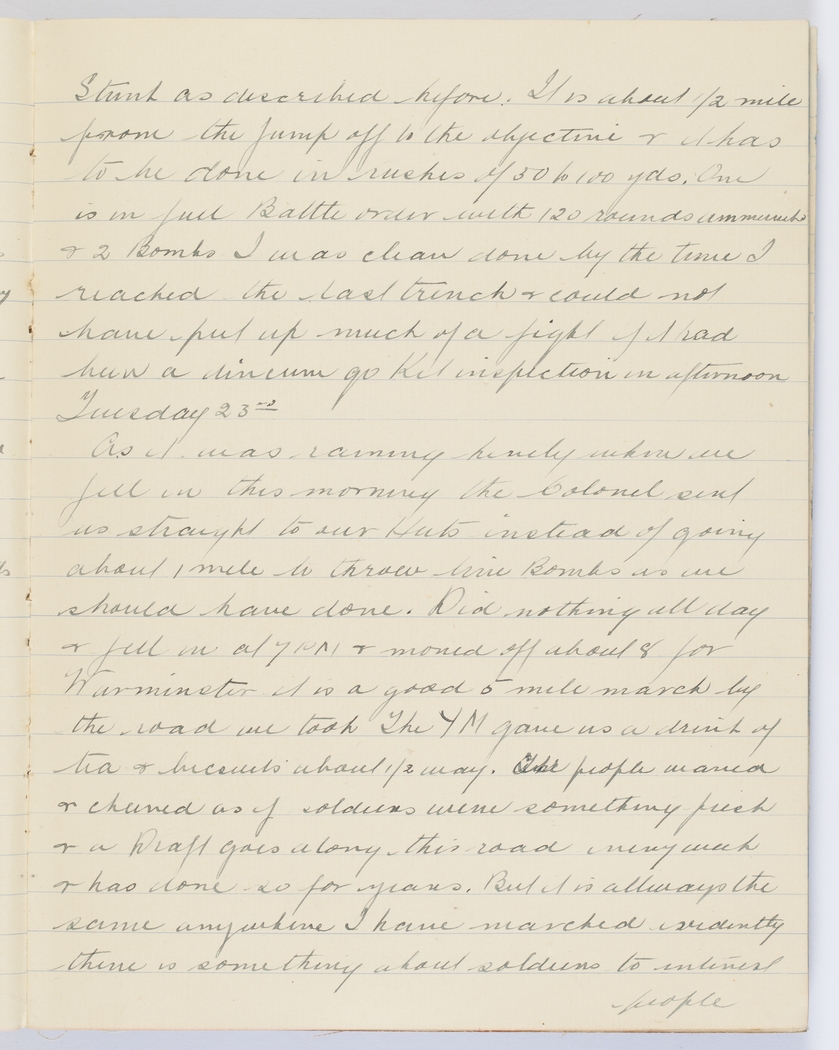 Stunt as described before. It is about 1/2 mile
from the jump off to the objective & it has
to be done in rushes of 50 to 100 yds. One
is in full Battle order with 120 rounds ammunit
& 2 Bombs I was clean done by the time I
reached the last trench & could not
have put up much of a fight if it had
been a dincum go Kit inspection in afternoon
Tuesday 23rd
As it was raining hevely when we
fell in this morning the Colonel sent
us straight to our Huts instead of going
about 1 mile to throw live Bombs as we
should have done. Did nothing all day
& fell in at 7 PM & moved off about 8 for
Warminster it is a good 5 mile march by
the road we took The YM gave us a drink of
tea & biscuits about 1/2 way. The people waved
& cheered as if soldiers were something fresh
& a Draft goes along this road every week
& has done so for years. But it is allways the
same anywhere I have marched evidently
there is something about soldiers to interest
people